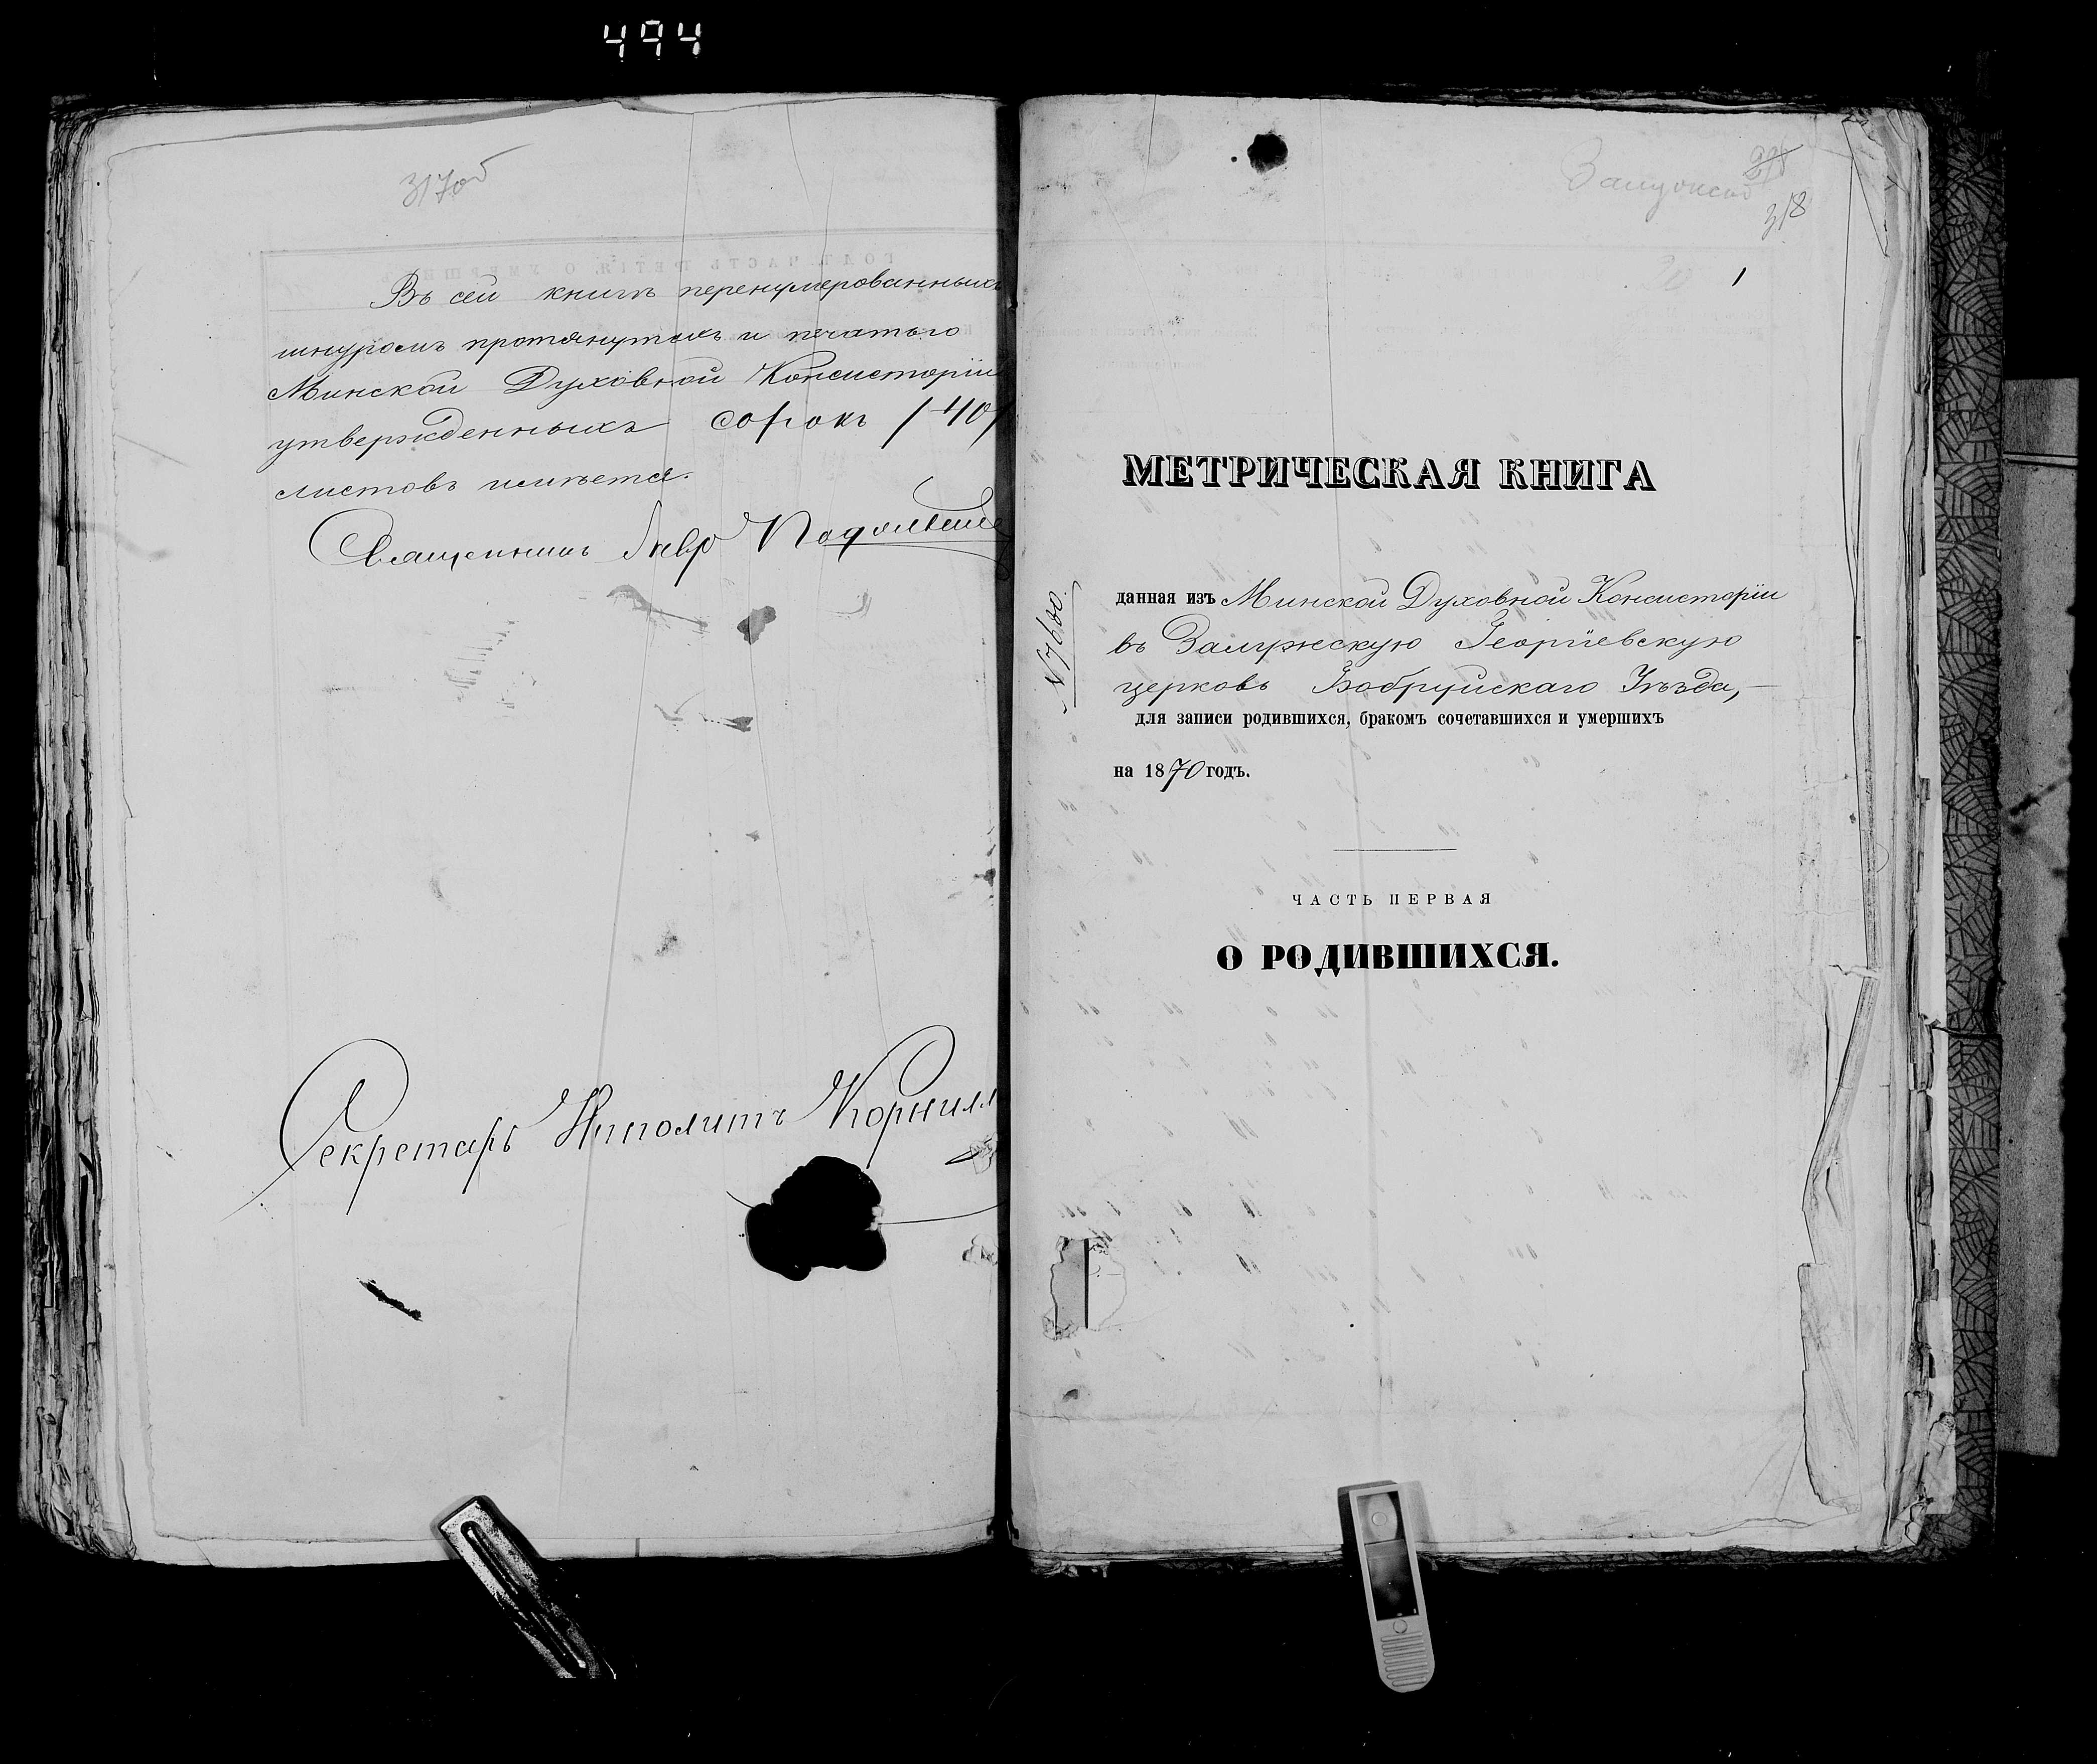 494
317об
Въ сей книгѣ перенумерованныхъ
шнуромъ протянутыхъ и печатью
Минской Духовной Консисторіи
утвержденныхъ сорокъ /40/
листовъ имѣется.
Священникъ
Секретарь Ипполитъ Корнил
318
1
МЕТРИЧЕСКАЯ КНИГА
№ 7600.
данная изъ Минской Духовной Консисторіи
въ Залужскую Георгіевскую
церковь Бобруйскаго Уѣзда,—
для записи родившихся, бракомъ сочетавшихся и умершихъ
на 1870 годъ.
ЧАСТЬ ПЕРВАЯ
О РОДИВШИХСЯ.